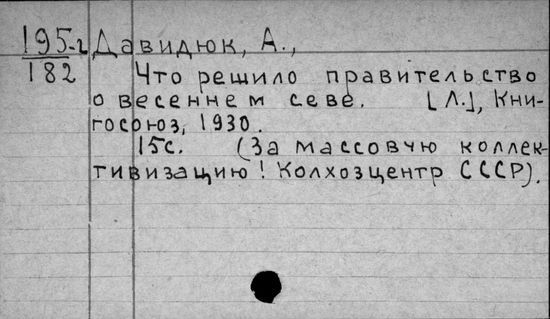 195-2 Давидюк, А.,
182 Что решило правительство
о весеннем севе. [Л.], Кни-
госоюз, 1930.
15с. (За массовую коллек-
тивизацию! Колхозцентр СССР).